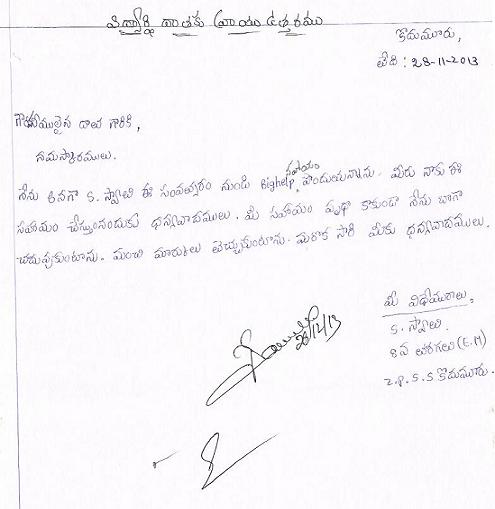 విద్యార్థి దాతకు వ్రాయు ఉత్తరము
కొడుమూరు,
తేది : 28-11-2013
గౌరవనీయులైన దాత గారికి,
నమస్కారములు.
నేను అనగా S. స్వాతి ఈ సంవత్సరం నుండి Bighelp సహాయం పొందుచున్నాను. మీరు నాకు ఈ
సహాయం చేస్తునందుకు ధన్యవాదములు. మీ సహాయం వృథా కాకుండా నేను బాగా
చదువుకుంటాను. మంచి మార్కులు తెచ్చుకుంటాను. మరొక సారి మీకు ధన్యవాదములు.
మీ విధేయురాలు,
S. స్వాతి.
8వ తరగతి (E.M)
Z.P.S.S కొడుమూరు.